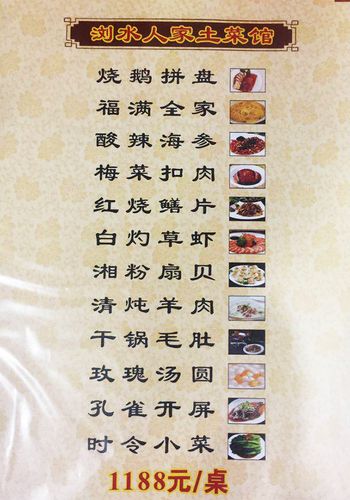 浏水人家土菜馆
烧鹅拼盘
福满全家
酸辣海参
梅菜扣肉
红烧鳝片
白灼草虾
湘粉扇贝
清炖羊肉
干锅毛肚
玫瑰汤圆
孔雀开屏
时令小菜
1188元/桌